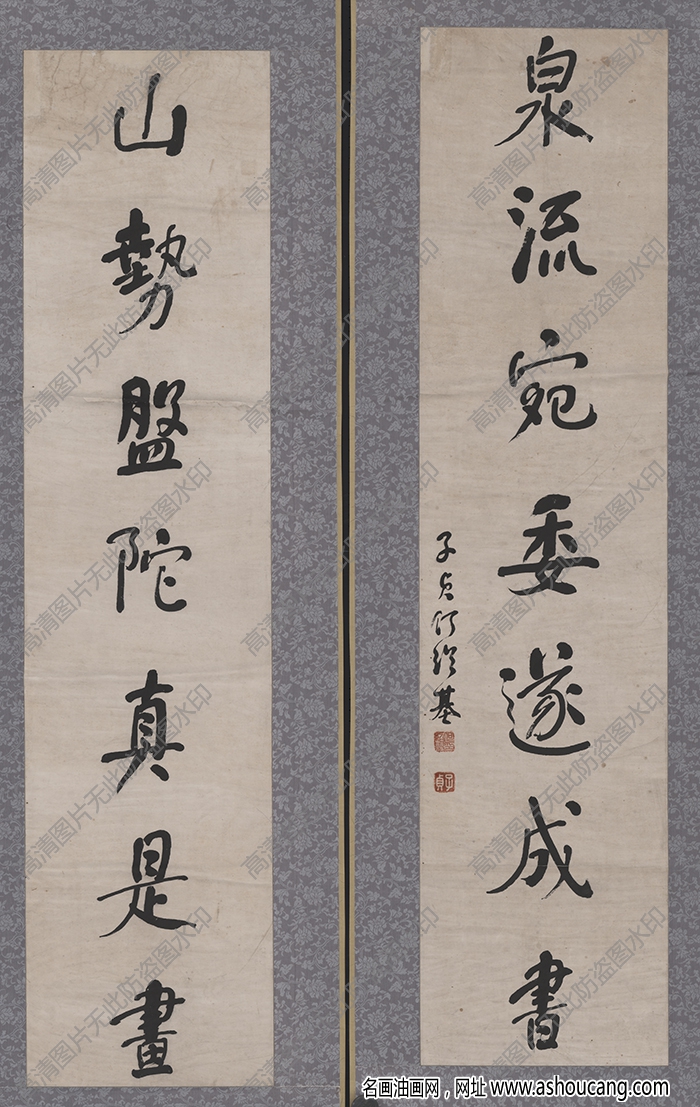 泉流宛委遂成書
子貞何紹基
子貞
山勢盤陀真是畫
高清图片无此防盗图水印
名画油画网，网址 www.ashoucang.com